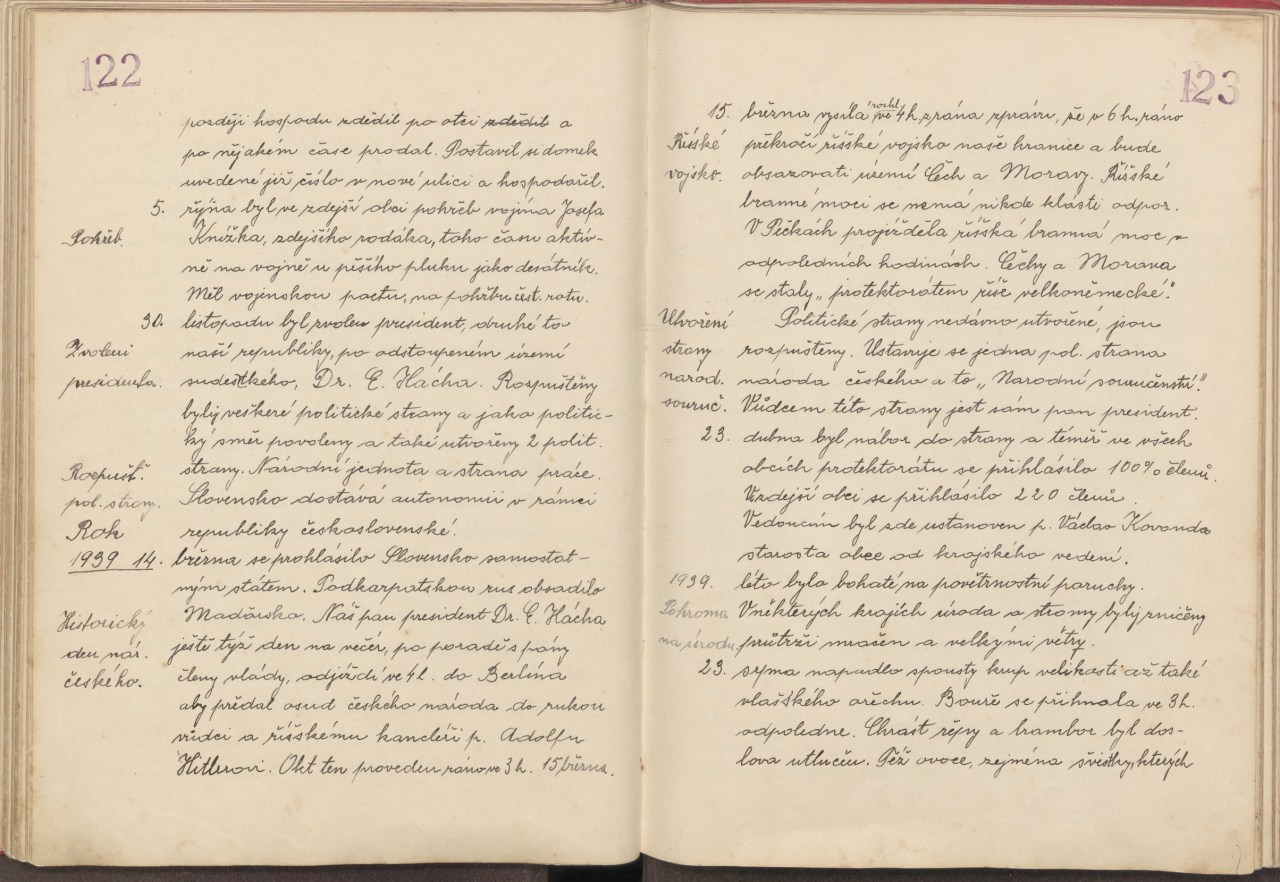 122
později hospodu zdědil po otci zdědil a
po nějakém čase prodal. Postavil si domek
uvedené již číslo v nové ulici a hospodařil.
5. října byl ve zdejší obci pohřeb vojína Josefa
Pohřeb. Knížka, zdejšího rodáka, toho času aktiv-
ně na vojně u pěšího pluku jako desátník.
Měl vojinskou poctu, na pohřbu čest. rotu.
30. listopadu byl zvolen president, druhé to
Zvolení naší republiky, po odstoupeném území
presidenta. sudetského, Dr. E. Hácha. Rozpuštěny
byly veškeré politické strany a jako politic-
ký směr povoleny a také utvořeny 2 polit.
Rozpušť. strany. Národní jednota a strana práce.
pol. strany. Slovensko dostává autonomii v rámci
Rok republiky československé.
1939 14. března se prohlásilo Slovensko samostat-
ným státem. Podkarpatskou rus obsadilo
Historický Maďarsko. Náš pan president Dr. E. Hácha
den nár. ještě týž den na večer, po poradě s pány
českého. členy vlády, odjíždí ve 4 h. do Berlína
aby předal osud českého národa do rukou
vůdci a říšskému kancléři p. Adolfu
Hitlerovi. Akt ten proveden ráno ve 3 h. 15 března.
123
15. března vysílá rozhl. ve 4 h. zrána zprávu, že v 6 h. ráno
Říšské překročí říšské vojsko naše hranice a bude
vojsko. obsazovati území Čech a Moravy. Říšské
branné moci se nemá nikde klásti odpor.
V Pečkách projížděla říšská branná moc v
odpoledních hodinách. Čechy a Morava
se staly „protektorátem říše velkoněmecké."
Utvoření Politické strany nedávno utvořené, jsou
strany rozpuštěny. Ustavuje se jedna pol. strana
národ. národa českého a to „Narodní souručenství."
souruč. Vůdcem této strany jest sám pan president.
23. dubna byl nábor do strany a téměř ve všech
obcích protektorátu se přihlásilo 100% členů.
Ve zdejší obci se přihlásilo 220 členů.
Vedoucím byl zde ustanoven p. Václav Kovanda
starosta obce od krajského vedení.
1939. léto bylo bohaté na povětrnostní poruchy.
Pohroma V některých krajích úroda a stromy byly zničeny
na úrodu průtrží mračen a velkými větry.
23. srpna napadlo spousty krup velikosti až také
vlašského ořechu. Bouře se přihnala ve 3 h.
odpoledne. Chrást řepy a brambor byl dos-
lova utlučen. Též ovoce, zejména švestky, kterých